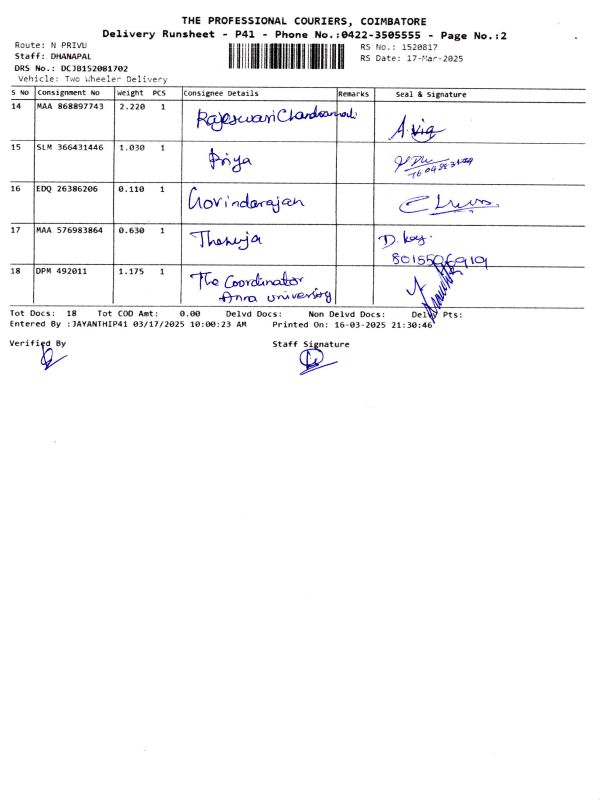 THE PROFESSIONAL COURIERS, COIMBATORE
Delivery Runsheet - P41 - Phone No.:0422-3505555 - Page No.:2
Route: N PRIVU
Staff: DHANAPAL
DRS No.: DCJB152081702
Vehicle: Two Wheeler Delivery
RS No.: 1520817
RS Date: 17-Mar-2025
S No Consignment No Weight PCS Consignee Details Remarks Seal & Signature
14 MAA 868897743 2.220 1 Rajeswari
15 SLM 366431446 1.030 1 Priya
16 EDQ 26386206 0.110 1 Govindarajan
17 MAA 576983864 0.630 1 Thenuja
18 DPM 492011 1.175 1 The Coordinator
Anna University
Tot Docs: 18 Tot COD Amt: 0.00 Delvd Docs: Non Delvd Docs: Pts:
Entered By :JAYANTHIP41 03/17/2025 10:00:23 AM Printed On: 16-03-2025 21:30:46
Verified By Staff Signature